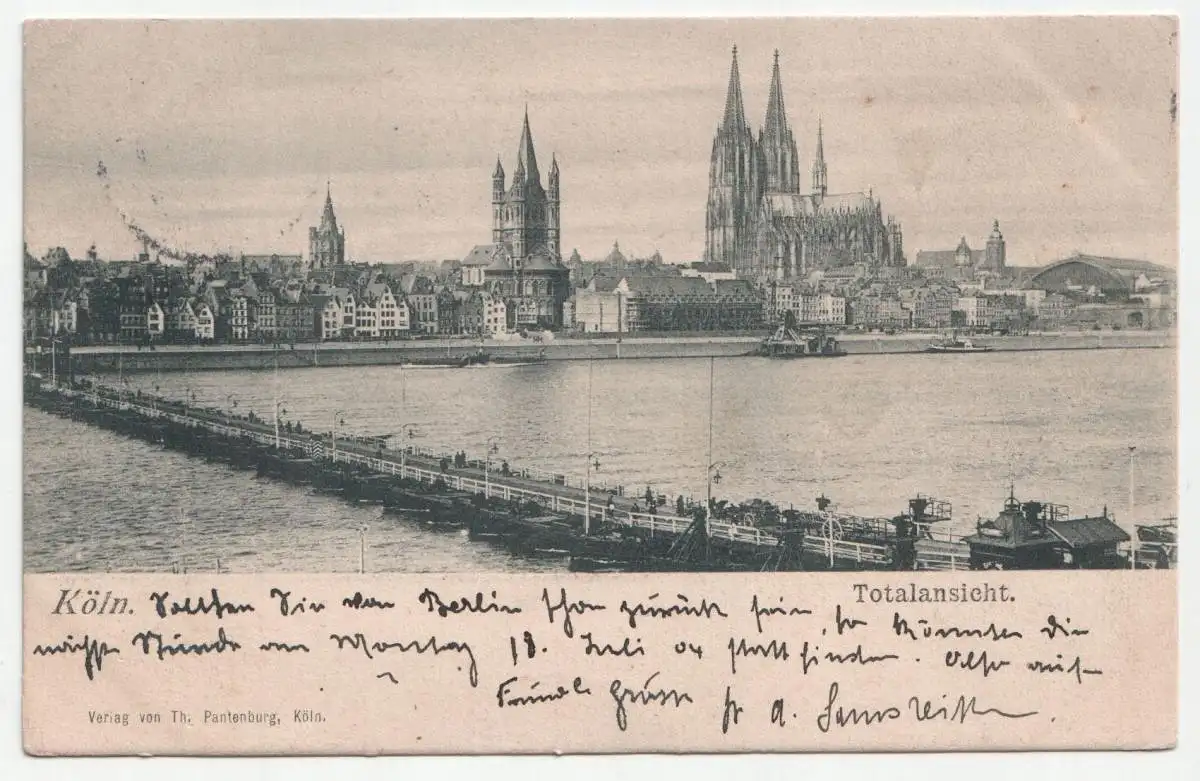 Köln. Totalansicht.
Sollten Sie von Berlin schon zurück sein, so könnte die
nächste Stunde am Montag 18. Juli 04 stattfinden. Also auf
Freundl. Grüsse
Verlag von Th. Pantenburg, Köln.